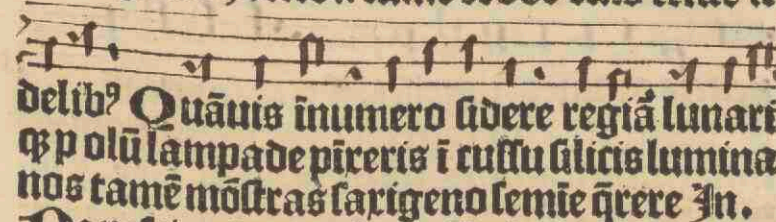 delibꝰ Quãuis ĩnumero ſidere regiã lunari
qꝫ p olũ lampade pĩxeris ĩ cuſſu ſilicis lumina
nos tamẽ mõſtras ſaxigeno ſemĩe q̃rere Jn.